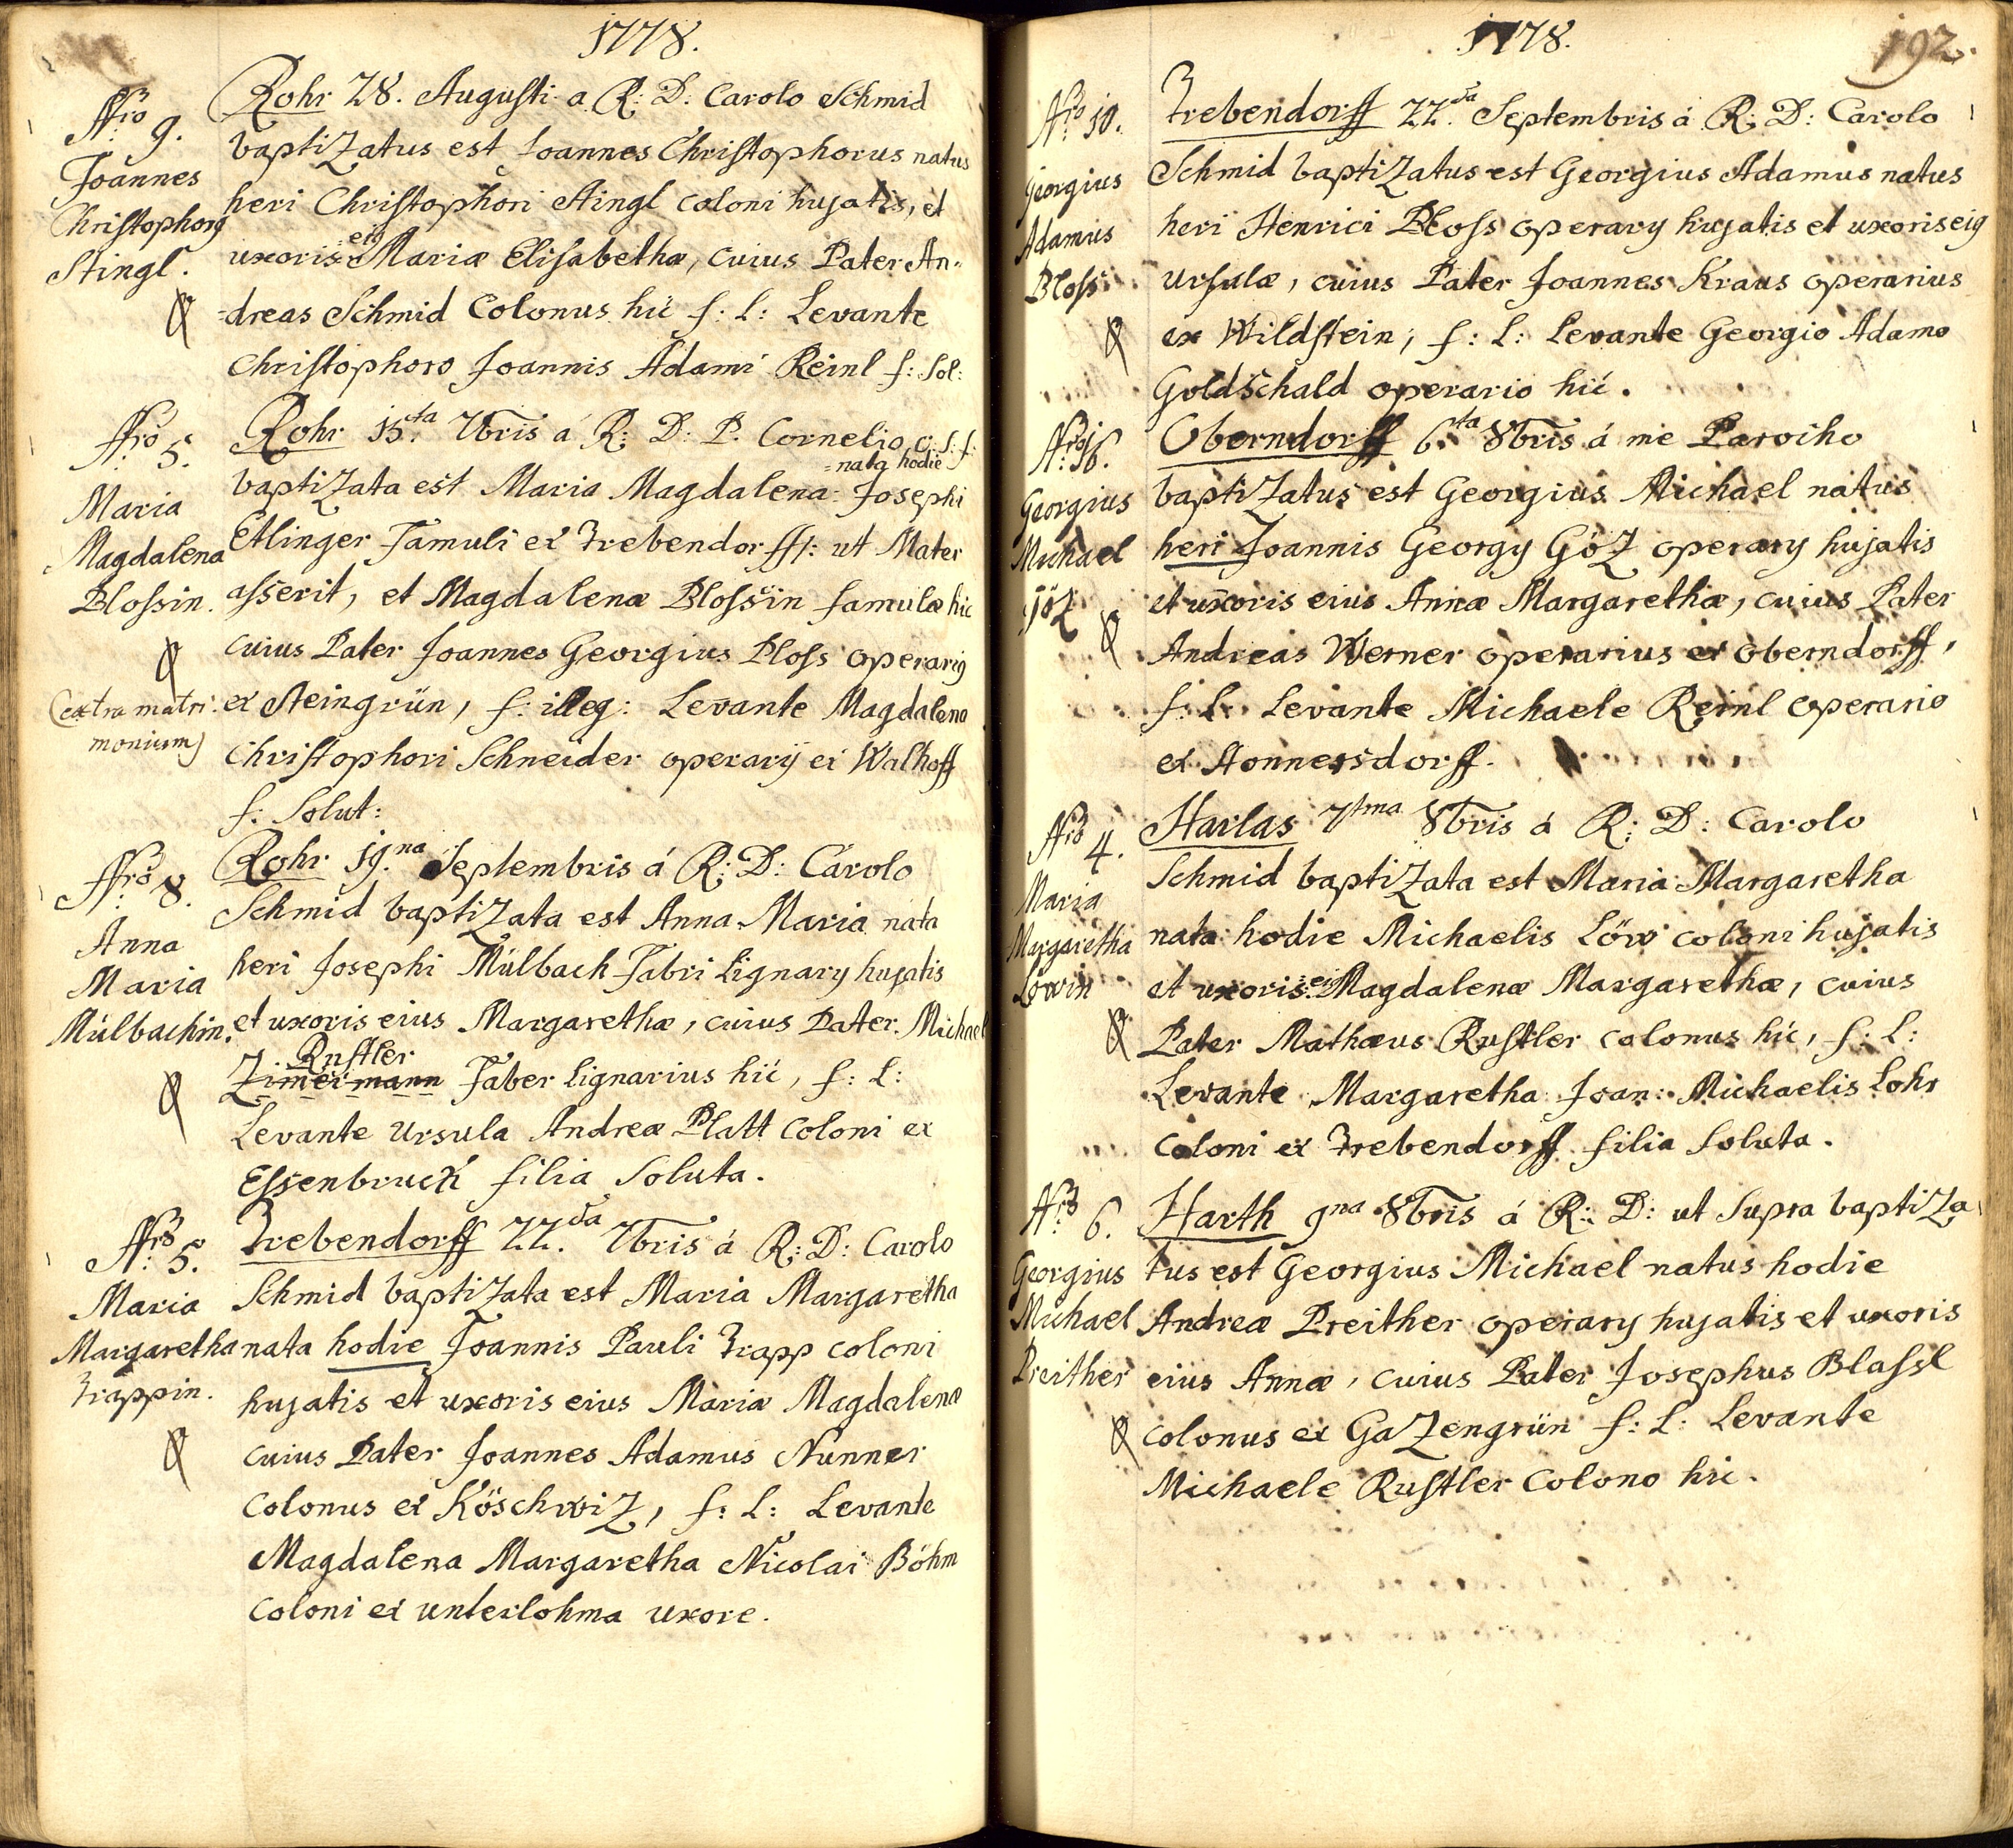 1778.
Nro 9.
Joannes
Christophorus
Stingl.
Rohr 28. Augusti a R: D: Carolo Schmid
baptiZatus est Joannes Christophorus natus
heri Christophori Stingl coloni hujatis, et
uxoris eius Mariæ Elisabethæ, cuius Pater An=
=dreas Schmid Colonus hic f: L: Levante
Christophoro Joannis Adami Reinl f: Sol:
Nro 5.
Maria
Magdalena
Blossin.
(extra matri:
monium)
Rohr 15.ta 7bris á R: D: P. Cornelio O: S: f:
=nata hodie
baptiZata est Maria Magdalena Josephi
Etlinger Famuli ex Trebendorff: ut Mater
asserit, et Magdalenæ Blossin famulæ hic
cuius Pater Joannes Georgius Ploss operarius
ex Steingrün, f: illeg: Levante Magdalena
Christophori Schneider operarij ex Walhoff
f: Solut:
Nro 8.
Anna
Maria
Mülbachin.
Rohr 19.na Septembris á R: D: Carolo
Schmid baptiZata est Anna Maria nata
heri Josephi Mülbach Fabri Lignary hujatis
et uxoris eius Margarethæ, cuius Pater Michael
Rustler
Zimermann Faber Lignarius hic, f: L:
Levante Ursula Andreæ Platt Coloni ex
Essenbruck filia Soluta.
Nro 5.
Maria
Margaretha
Trappin.
Trebendorff 22.da 7bris á R: D: Carolo
Schmid baptiZata est Maria Margaretha
nata hodie Joannis Pauli Trapp coloni
hujatis et uxoris eius Mariæ Magdalenæ
cuius Pater Joannes Adamus Nunner
Colonus ex KöschwiZ, f: L: Levante
Magdalena Margaretha Nicolai Böhm
Coloni ex unterlohma uxore.
1778.
192.
Nro 10.
Georgius
Adamus
Bloss
Trebendorff 22.da Septembris á R: D: Carolo
Schmid baptiZatus est Georgius Adamus natus
heri Henrici Bloss operary hujatis et uxoris eius
Ursulæ, cuius Pater Joannes Kraus operarius
ex Wildstein, f: L: Levante Georgio Adamo
Goldschald operario hic.
Nro 16.
Georgius
Michael
göZ
Oberndorff 6.ta 8bris á me Parocho
baptiZatus est Georgius Michael natus
heri Joannis Georgy GöZ operary hujatis
et uxoris eius Annæ Margarethæ, cuius Pater
Andreas Werner operarius ex oberndorff,
f: L: Levante Michaele Reinl operario
ex Honnersdorff.
Nro 4.
Maria
Margaretha
Löwin
Harlas 7tma 8bris á R: D: Carolo
Schmid baptiZata est Maria Margaretha
nata hodie Michaelis Löw coloni hujatis
et uxoris ei9 Magdalenæ Margarethæ, cuius
Pater Mathæus Rustler colonus hic, f: L:
Levante Margaretha Joan: Michaelis Lohr
Coloni ex Trebendorff filia Soluta.
Nro 6.
Georgius
Michael
Preither
Harth 9na 8bris á R: D: ut Supra baptiZa
tus est Georgius Michael natus hodie
Andreæ Preither operary hujatis et uxoris
eius Annæ, cuius Pater Josephus Blassl
colonus ex GaZengrün f: L: Levante
Michaele Rustler Colono hic.